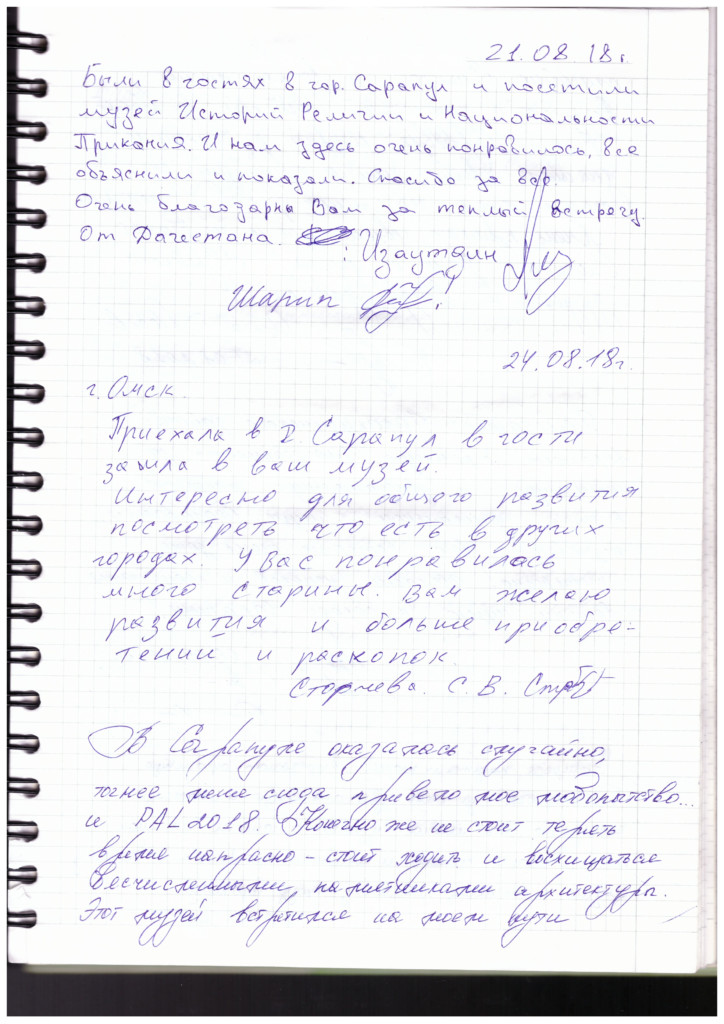 21.08 18г
Были в гостях в гор. Сарапул и посетили
музей Историй Религии и Национальности
Прикамия. И нам здесь очень понравилось, все
объяснили и показали. Спасибо за все.
Очень благозарны Вам за теплый встречу.
От Дагестана. : Изаутдин
Шарип
24.08.18г.
г. Омск.
Приехала в г. Сарапул в гости
зашла в ваш музей.
Интересно для общего развития
посмотреть что есть в других
городах. У Вас понравилась
много старины. Вам желаю
развития и больше приобре-
тений и раскопок.
С. В.
В Сарапуле оказалась случайно,
точнее меня сюда привело мое любопытство...
и PAL2018. Конечно же не стоит терять
время напрасно – стоит ходить и восхищаться
бесчисленными памятниками архитектуры.
Этот музей встретился на моем пути